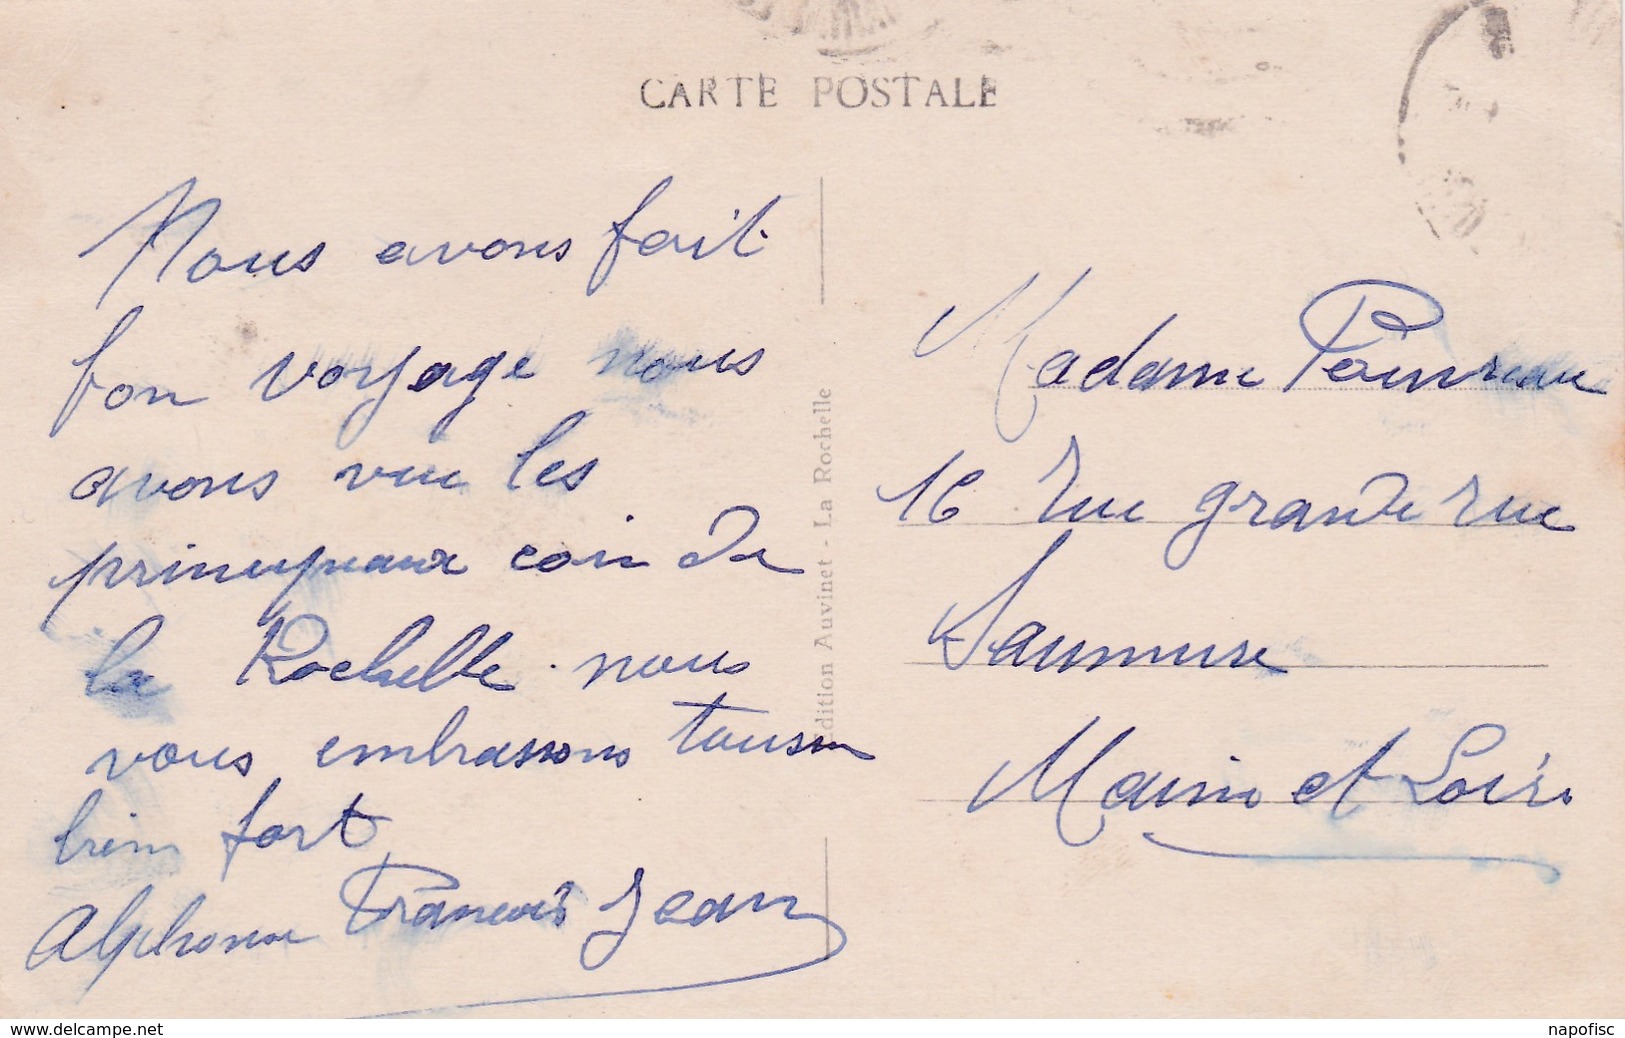 CARTE POSTALE
Nous avons fait
bon voyage nous
avons vue les
principeaux coin de
la Rochelle. nous
vous embrassons tous
bien fort
Alphonse François Jean
Edition Auvinet - La Rochelle
Madame
16 rue grande rue
Saumure
Maine et Loire
delcampe.net
napofisc